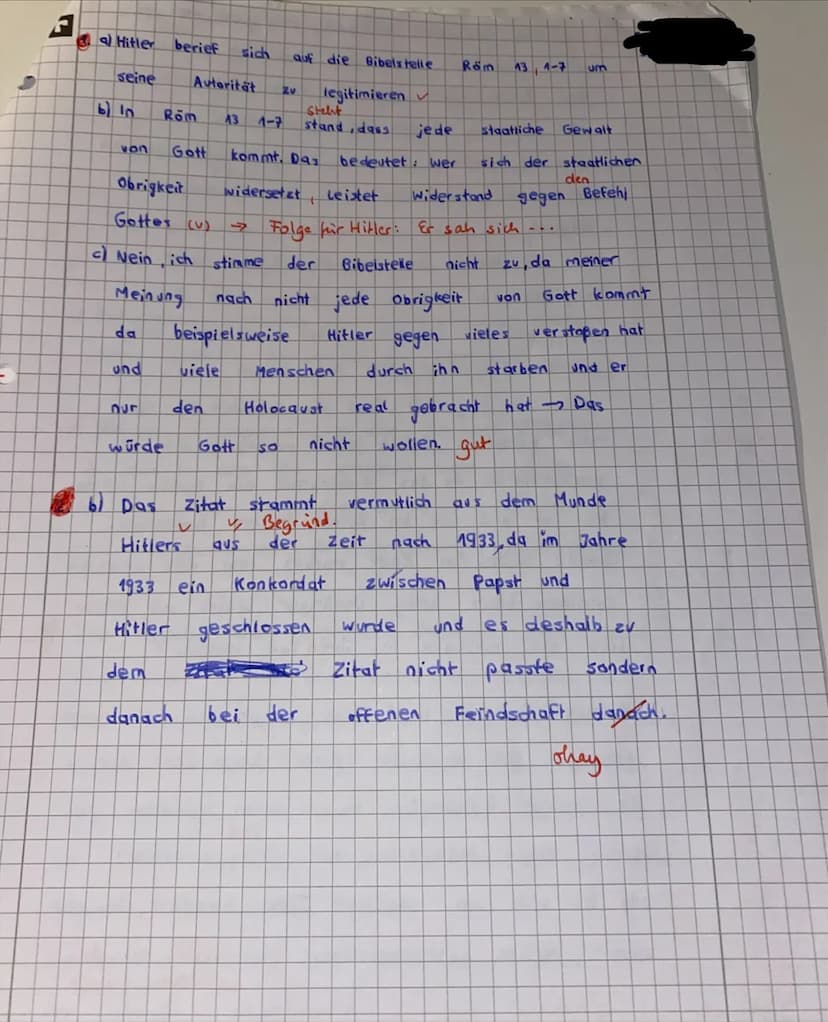 3. a) Hitler berief sich auf die Bibelstelle Röm 13, 1-7 um
seine Autorität zu legitimieren ✓
steht
b) In Röm 13 1-7 stand, dass jede staatliche Gewalt
von Gott kommt. Das bedeutet: wer sich der staatlichen
den
Obrigkeit widersetzt, leistet Widerstand gegen Befehl
Gottes (v) → Folge für Hitler: Er sah sich ...
c) Nein, ich stimme der Bibelstelle nicht zu, da meiner
Meinung nach nicht jede Obrigkeit von Gott kommt
da beispielsweise Hitler gegen vieles verstoßen hat
und viele Menschen durch ihn starben und er
nur den Holocaust real gebracht hat → Das
würde Gott so nicht wollen. gut
2. b) Das Zitat stammt vermutlich aus dem Munde
✓ ✓ Begründ.
Hitlers aus der Zeit nach 1933, da im Jahre
1933 ein Konkordat zwischen Papst und
Hitler geschlossen wurde und es deshalb zu
dem Zitat nicht passte sondern
danach bei der offenen Feindschaft danach.
okay